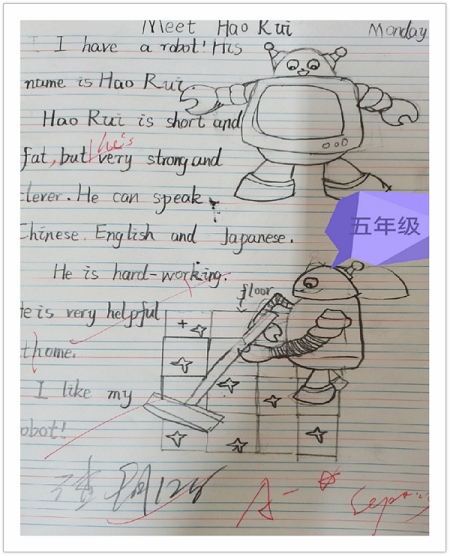 Meet Hao Rui
Monday
I have a robot! His
name is Hao Rui.
Hao Rui is short and
fat, but he's very strong and
clever. He can speak
Chinese. English and Japanese.
He is hard-working.
He is very helpful
at home.
I like my
robot!
floor
五年级
A-
Sep